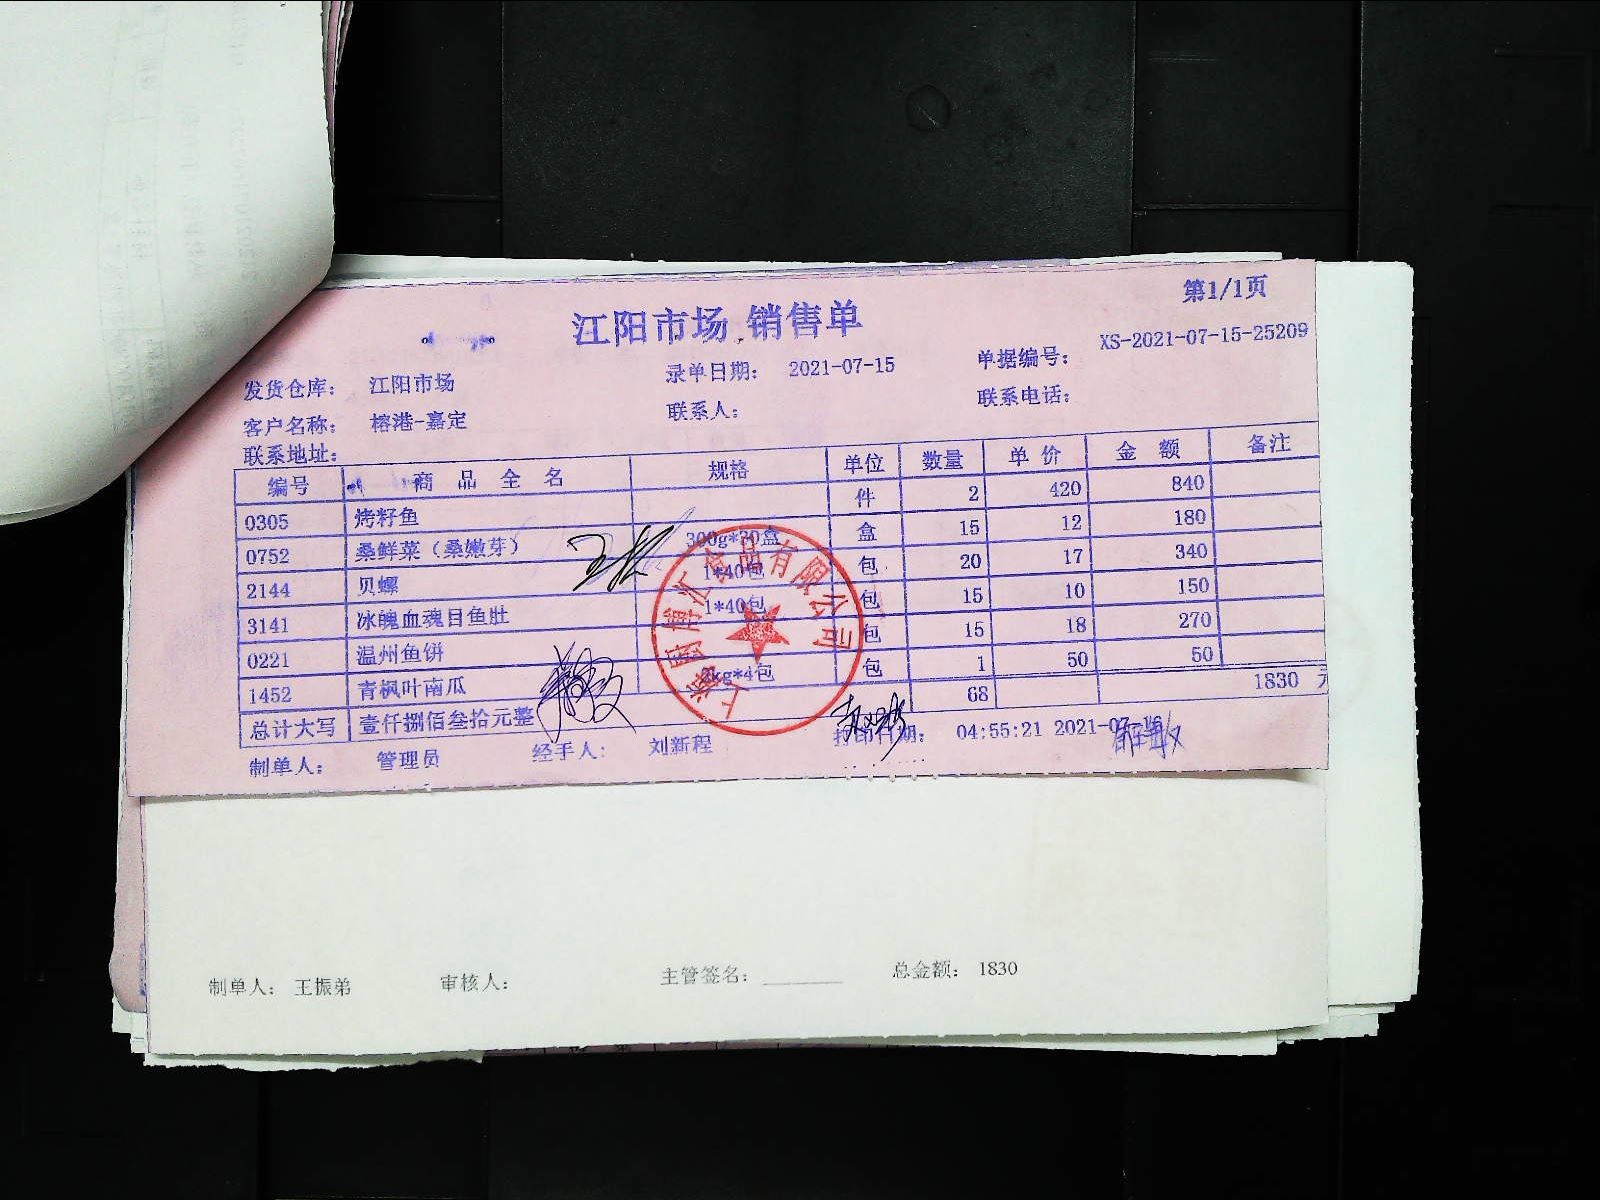 第1/1页
江阳市场 销售单
发货仓库： 江阳市场 录单日期： 2021-07-15 单据编号： XS-2021-07-15-25209
客户名称： 榕港-嘉定 联系人： 联系电话：
联系地址：
编号 商 品 全 名 规格 单位 数量 单 价 金 额 备注
0305 烤籽鱼 件 2 420 840
0752 桑鲜菜（桑嫩芽） 300g*30盒 盒 15 12 180
2144 贝螺 1*40包 包 20 17 340
3141 冰魄血魂目鱼肚 1*40包 包 15 10 150
0221 温州鱼饼 包 15 18 270
1452 青枫叶南瓜 2kg*4包 包 1 50 50
总计大写 壹仟捌佰叁拾元整 68 1830 元
制单人： 管理员 经手人： 刘新程 打印日期： 04:55:21 2021-07-16
食品有限公司
制单人： 王振弟 审核人： 主管签名： 总金额： 1830